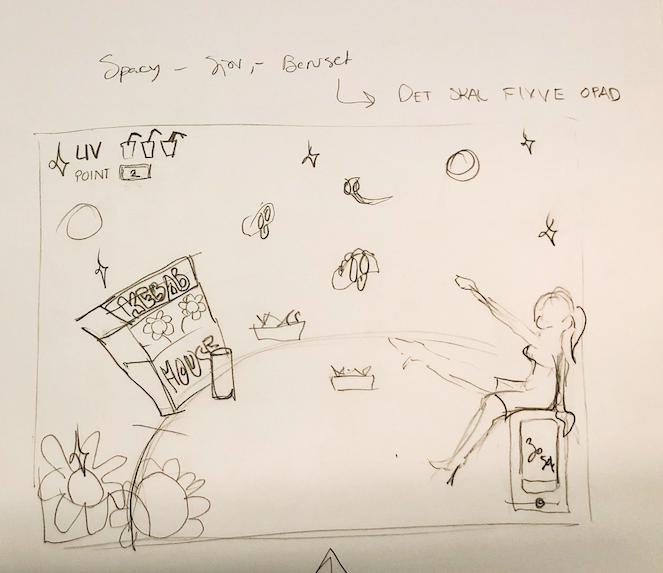 Spacy - Sjov,- Beruset
DET SKAL FLYVE OPAD
LIV
POINT 2
KEBAB
HOUSE
30 SK